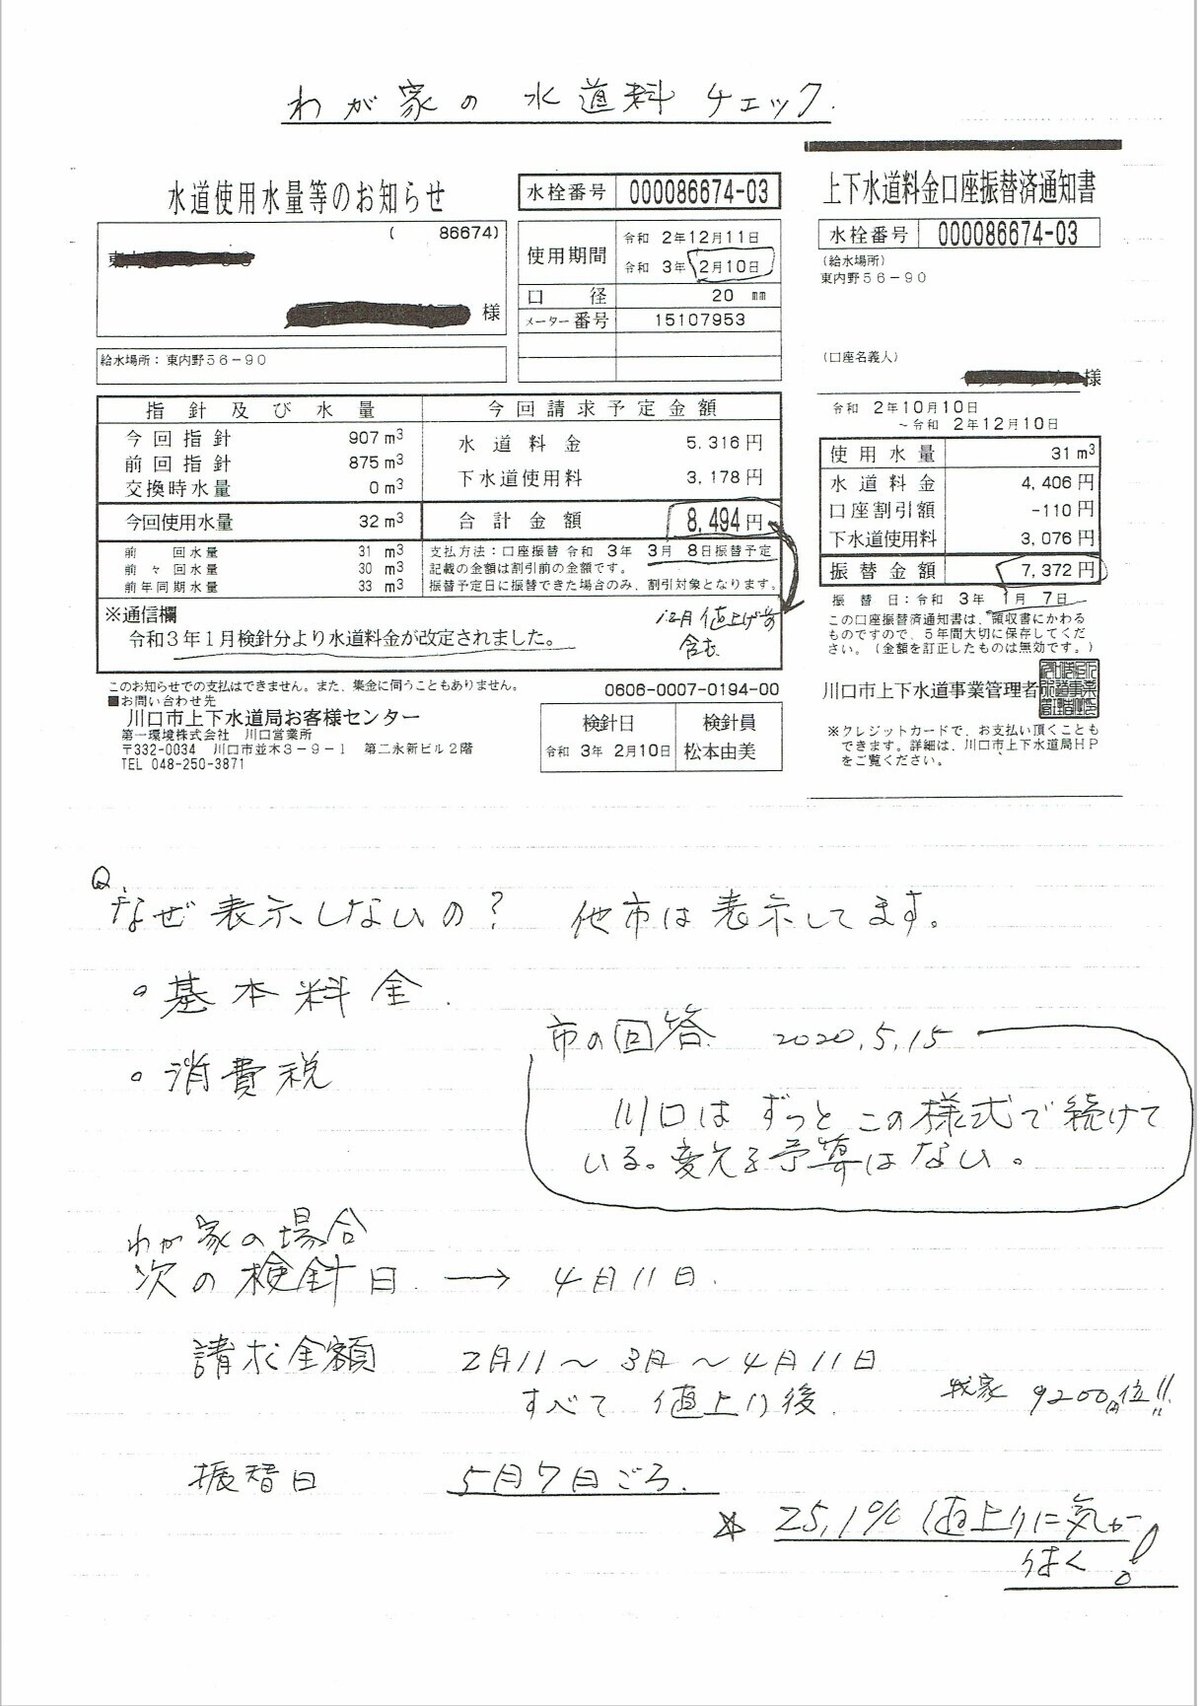 わが家の水道料チェック.
水道使用水量等のお知らせ
( 86674)
様
給水場所：東内野５６－９０
水栓番号 000086674-03
使用期間 令和 2年12月11日
令和 3年 2月10日
口径 20 mm
メーター番号 15107953
指針及び水量 今回請求予定金額
今回指針 907 m3
前回指針 875 m3
交換時水量 0 m3
水道料金 5,316円
下水道使用料 3,178円
今回使用水量 32 m3 合計金額 8,494円
前回水量 31 m3
前々回水量 30 m3
前年同期水量 33 m3
支払方法：口座振替 令和 3年 3月 8日振替予定
記載の金額は割引前の金額です。
振替予定日に振替できた場合のみ、割引対象となります。
※通信欄
令和３年１月検針分より水道料金が改定されました。
12月値上げ分
含む
このお知らせでの支払はできません。また、集金に伺うこともありません。
■お問い合わせ先
川口市上下水道局お客様センター
第一環境株式会社 川口営業所
〒332-0034 川口市並木３－９－１ 第二永新ビル２階
TEL 048-250-3871
0606-0007-0194-00
検針日 検針員
令和 3年 2月10日 松本由美
上下水道料金口座振替済通知書
水栓番号 000086674-03
(給水場所)
東内野５６－９０
(口座名義人)
様
令和 2年10月10日
～令和 2年12月10日
使用水量 31 m3
水道料金 4,406円
口座割引額 -110円
下水道使用料 3,076円
振替金額 7,372円
振替日：令和 3年 1月 7日
この口座振替済通知書は、領収書にかわる
ものですので、５年間大切に保存してくだ
さい。（金額を訂正したものは無効です。）
川口市上下水道事業管理者
※クレジットカードで、お支払い頂くことも
できます。詳細は、川口市上下水道局ＨＰ
をご覧ください。
Q.
なぜ表示しないの？ 他市は表示してます。
・基本料金.
・消費税
市の回答 2020.5.15
川口はずっとこの様式で続けて
いる。変える予算はない。
わが家の場合
次の検針日. → 4月11日.
請求金額 2月11～3月～4月11日
すべて値上り後.
我家 9200円位!!
振替日 5月7日ごろ.
☆ 25,1% 値上りに気がつく!